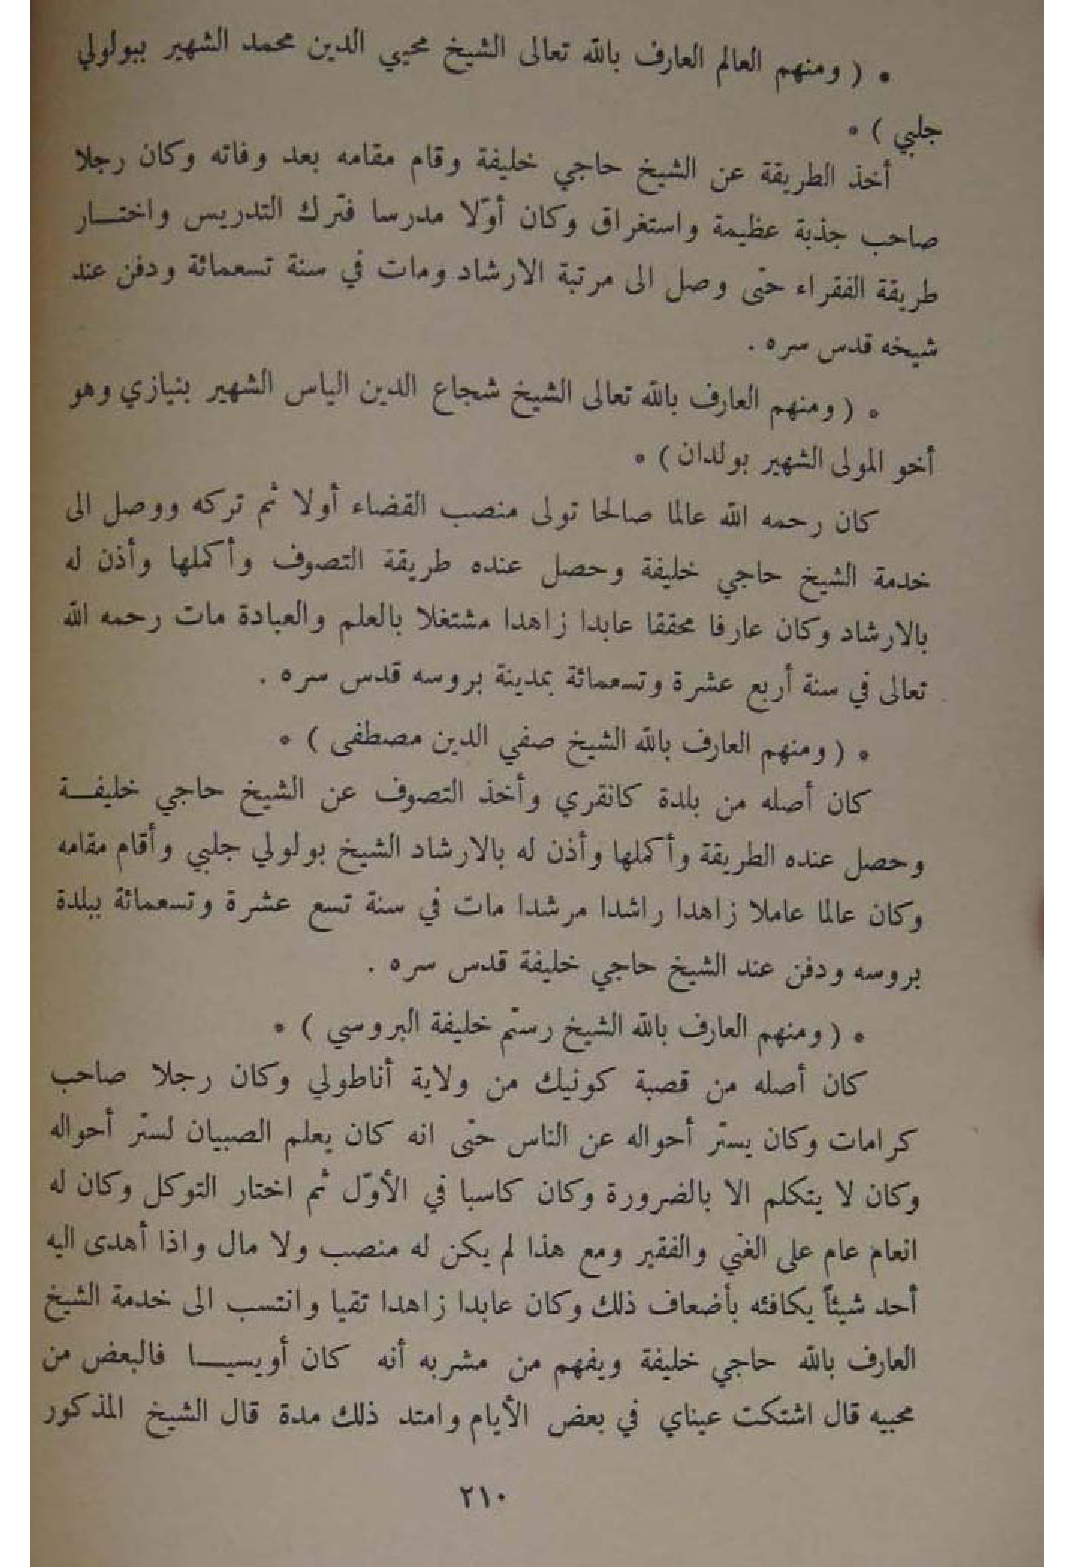 * ( ومنهم العالم العارف بالله تعالى الشيخ محيي الدين محمد الشهير ببولولي
جلبي ) *
أخذ الطريقة عن الشيخ حاجي خليفة وقام مقامه بعد وفاته وكان رجلا
صاحب جذبة عظيمة واستغراق وكان أوّلا مدرسا فترك التدريس واختــار
طريقة الفقراء حتى وصل الى مرتبة الارشاد ومات في سنة تسعمائة ودفن عند
شيخه قدس سره .
* ( ومنهم العارف بالله تعالى الشيخ شجاع الدين الياس الشهير بنيازي وهو
أخو المولى الشهير بولدان ) *
كان رحمه الله عالما صالحا تولى منصب القضاء أولا ثم تركه ووصل الى
خدمة الشيخ حاجي خليفة وحصل عنده طريقة التصوف وأكملها وأذن له
بالارشاد وكان عارفا محققا عابدا زاهدا مشتغلا بالعلم والعبادة مات رحمه الله
تعالى في سنة أربع عشرة وتسعمائة بمدينة بروسه قدس سره .
* ( ومنهم العارف بالله الشيخ صفي الدين مصطفى ) *
كان أصله من بلدة كانقري وأخذ التصوف عن الشيخ حاجي خليفــة
وحصل عنده الطريقة وأكملها وأذن له بالارشاد الشيخ بولولي جلبي وأقام مقامه
وكان عالما عاملا زاهدا راشدا مرشدا مات في سنة تسع عشرة وتسعمائة ببلدة
بروسه ودفن عند الشيخ حاجي خليفة قدس سره .
* ( ومنهم العارف بالله الشيخ رستم خليفة البروسي ) *
كان أصله من قصبة كونيك من ولاية أناطولي وكان رجلا صاحب
كرامات وكان يستر أحواله عن الناس حتى انه كان يعلم الصبيان لستر أحواله
وكان لا يتكلم الا بالضرورة وكان كاسبا في الأوّل ثم اختار التوكل وكان له
انعام عام على الغني والفقير ومع هذا لم يكن له منصب ولا مال واذا أهدى اليه
أحد شيئاً يكافئه بأضعاف ذلك وكان عابدا زاهدا تقيا وانتسب الى خدمة الشيخ
العارف بالله حاجي خليفة ويفهم من مشربه أنه كان أويسيــا فالبعض من
محبيه قال اشتكت عيناي في بعض الأيام وامتد ذلك مدة قال الشيخ المذكور
٢١٠